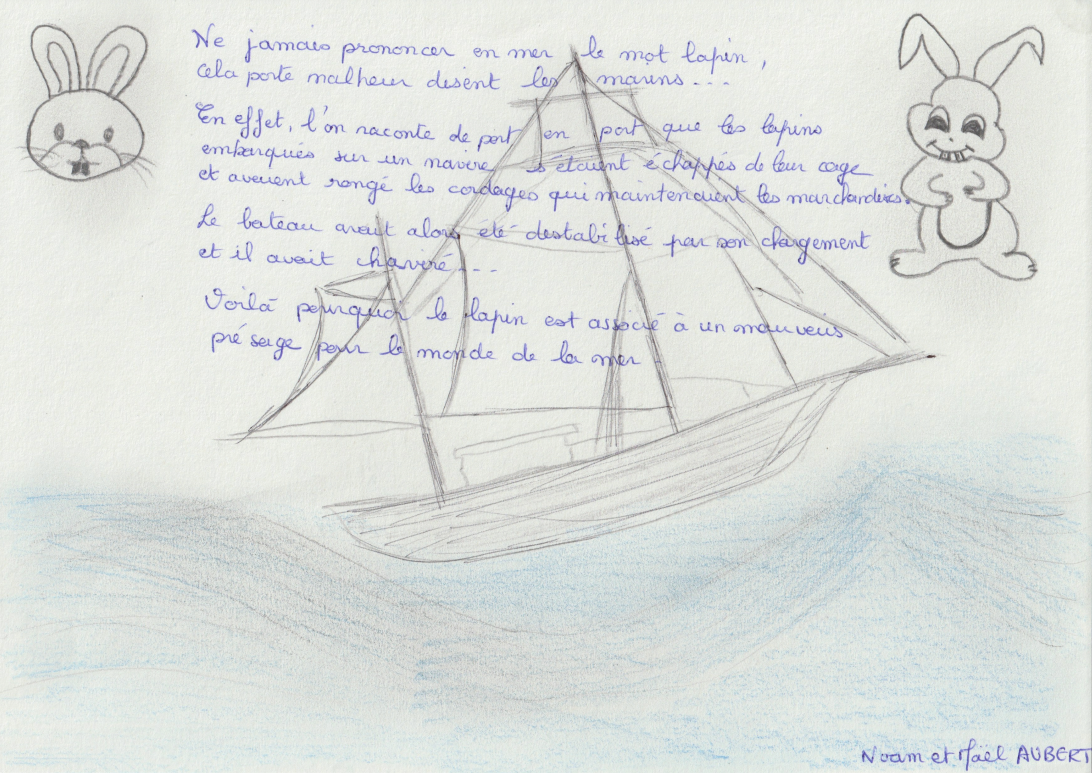 Ne jamais prononcer en mer le mot lapin,
cela porte malheur disent les marins...
En effet, l'on raconte de port en port que les lapins
embarqués sur un navire s'étaient échappés de leur cage
et avaient rongé les cordages qui maintenaient les marchandises.
Le bateau avait alors été destabilisé par son chargement
et il avait chaviré...
Voilà pourquoi le lapin est associé à un mauvais
présage pour le monde de la mer
Noam et Maël AUBERT